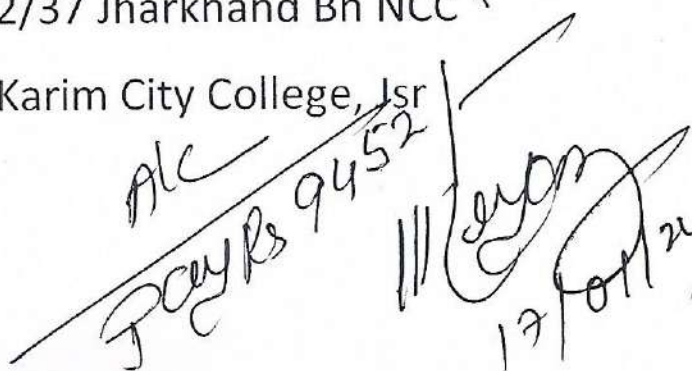 2/37 Jharkhand Bn NCC
Karim City College, Jsr
A/C
Pay Rs 9452
17/01/2